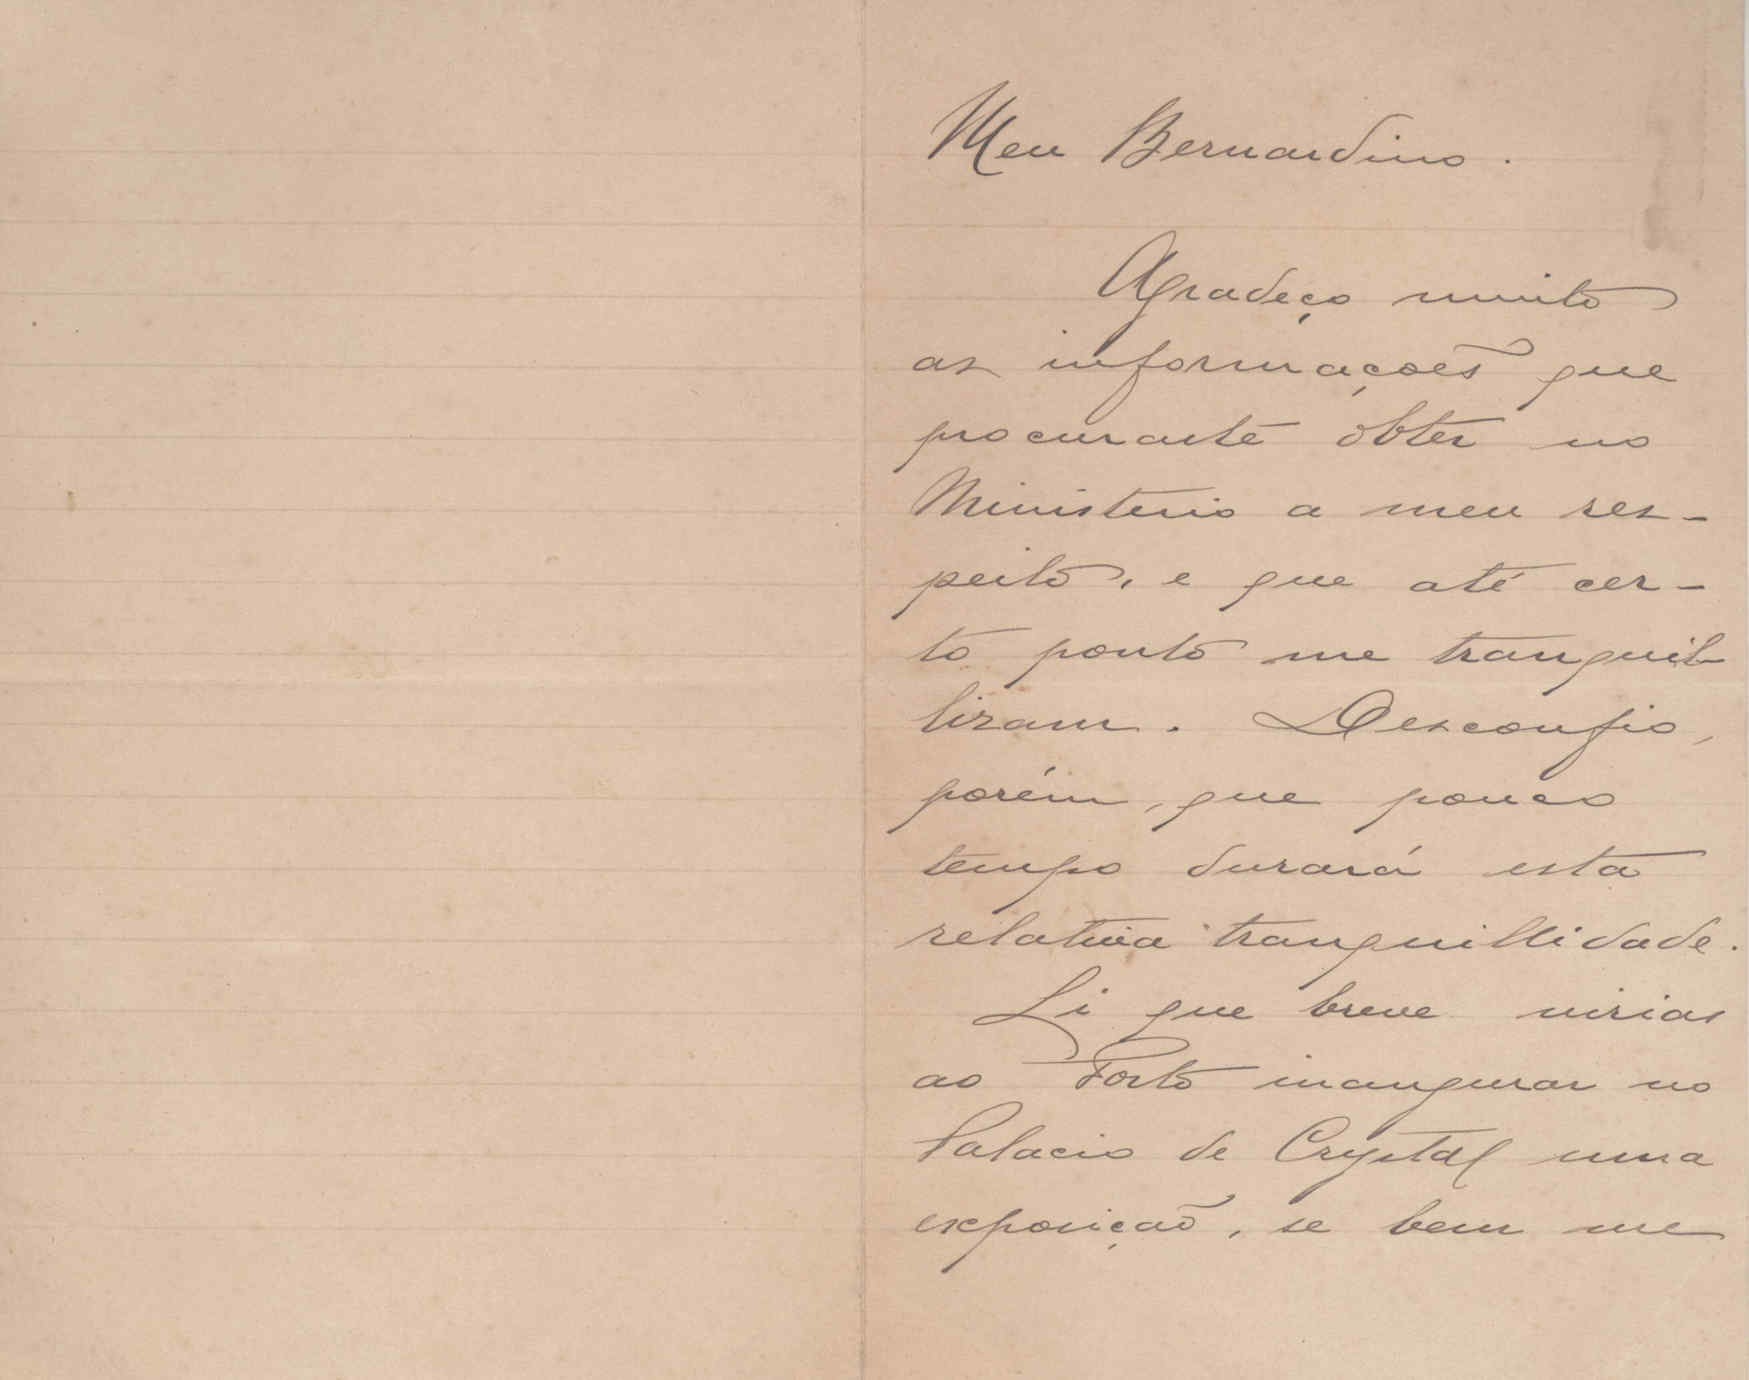 Meu Bernardino.
Agradeço muito
as informações que
procuraste obter no
Ministerio a meu res-
peito, e que até cer-
to ponto me tranquil-
lizam. Desconfio,
porém, que pouco
tempo durará esta
relativa tranquillidade.
Li que breve virias
ao Porto inaugurar no
Palacio de Crystal uma
exposição, se bem me